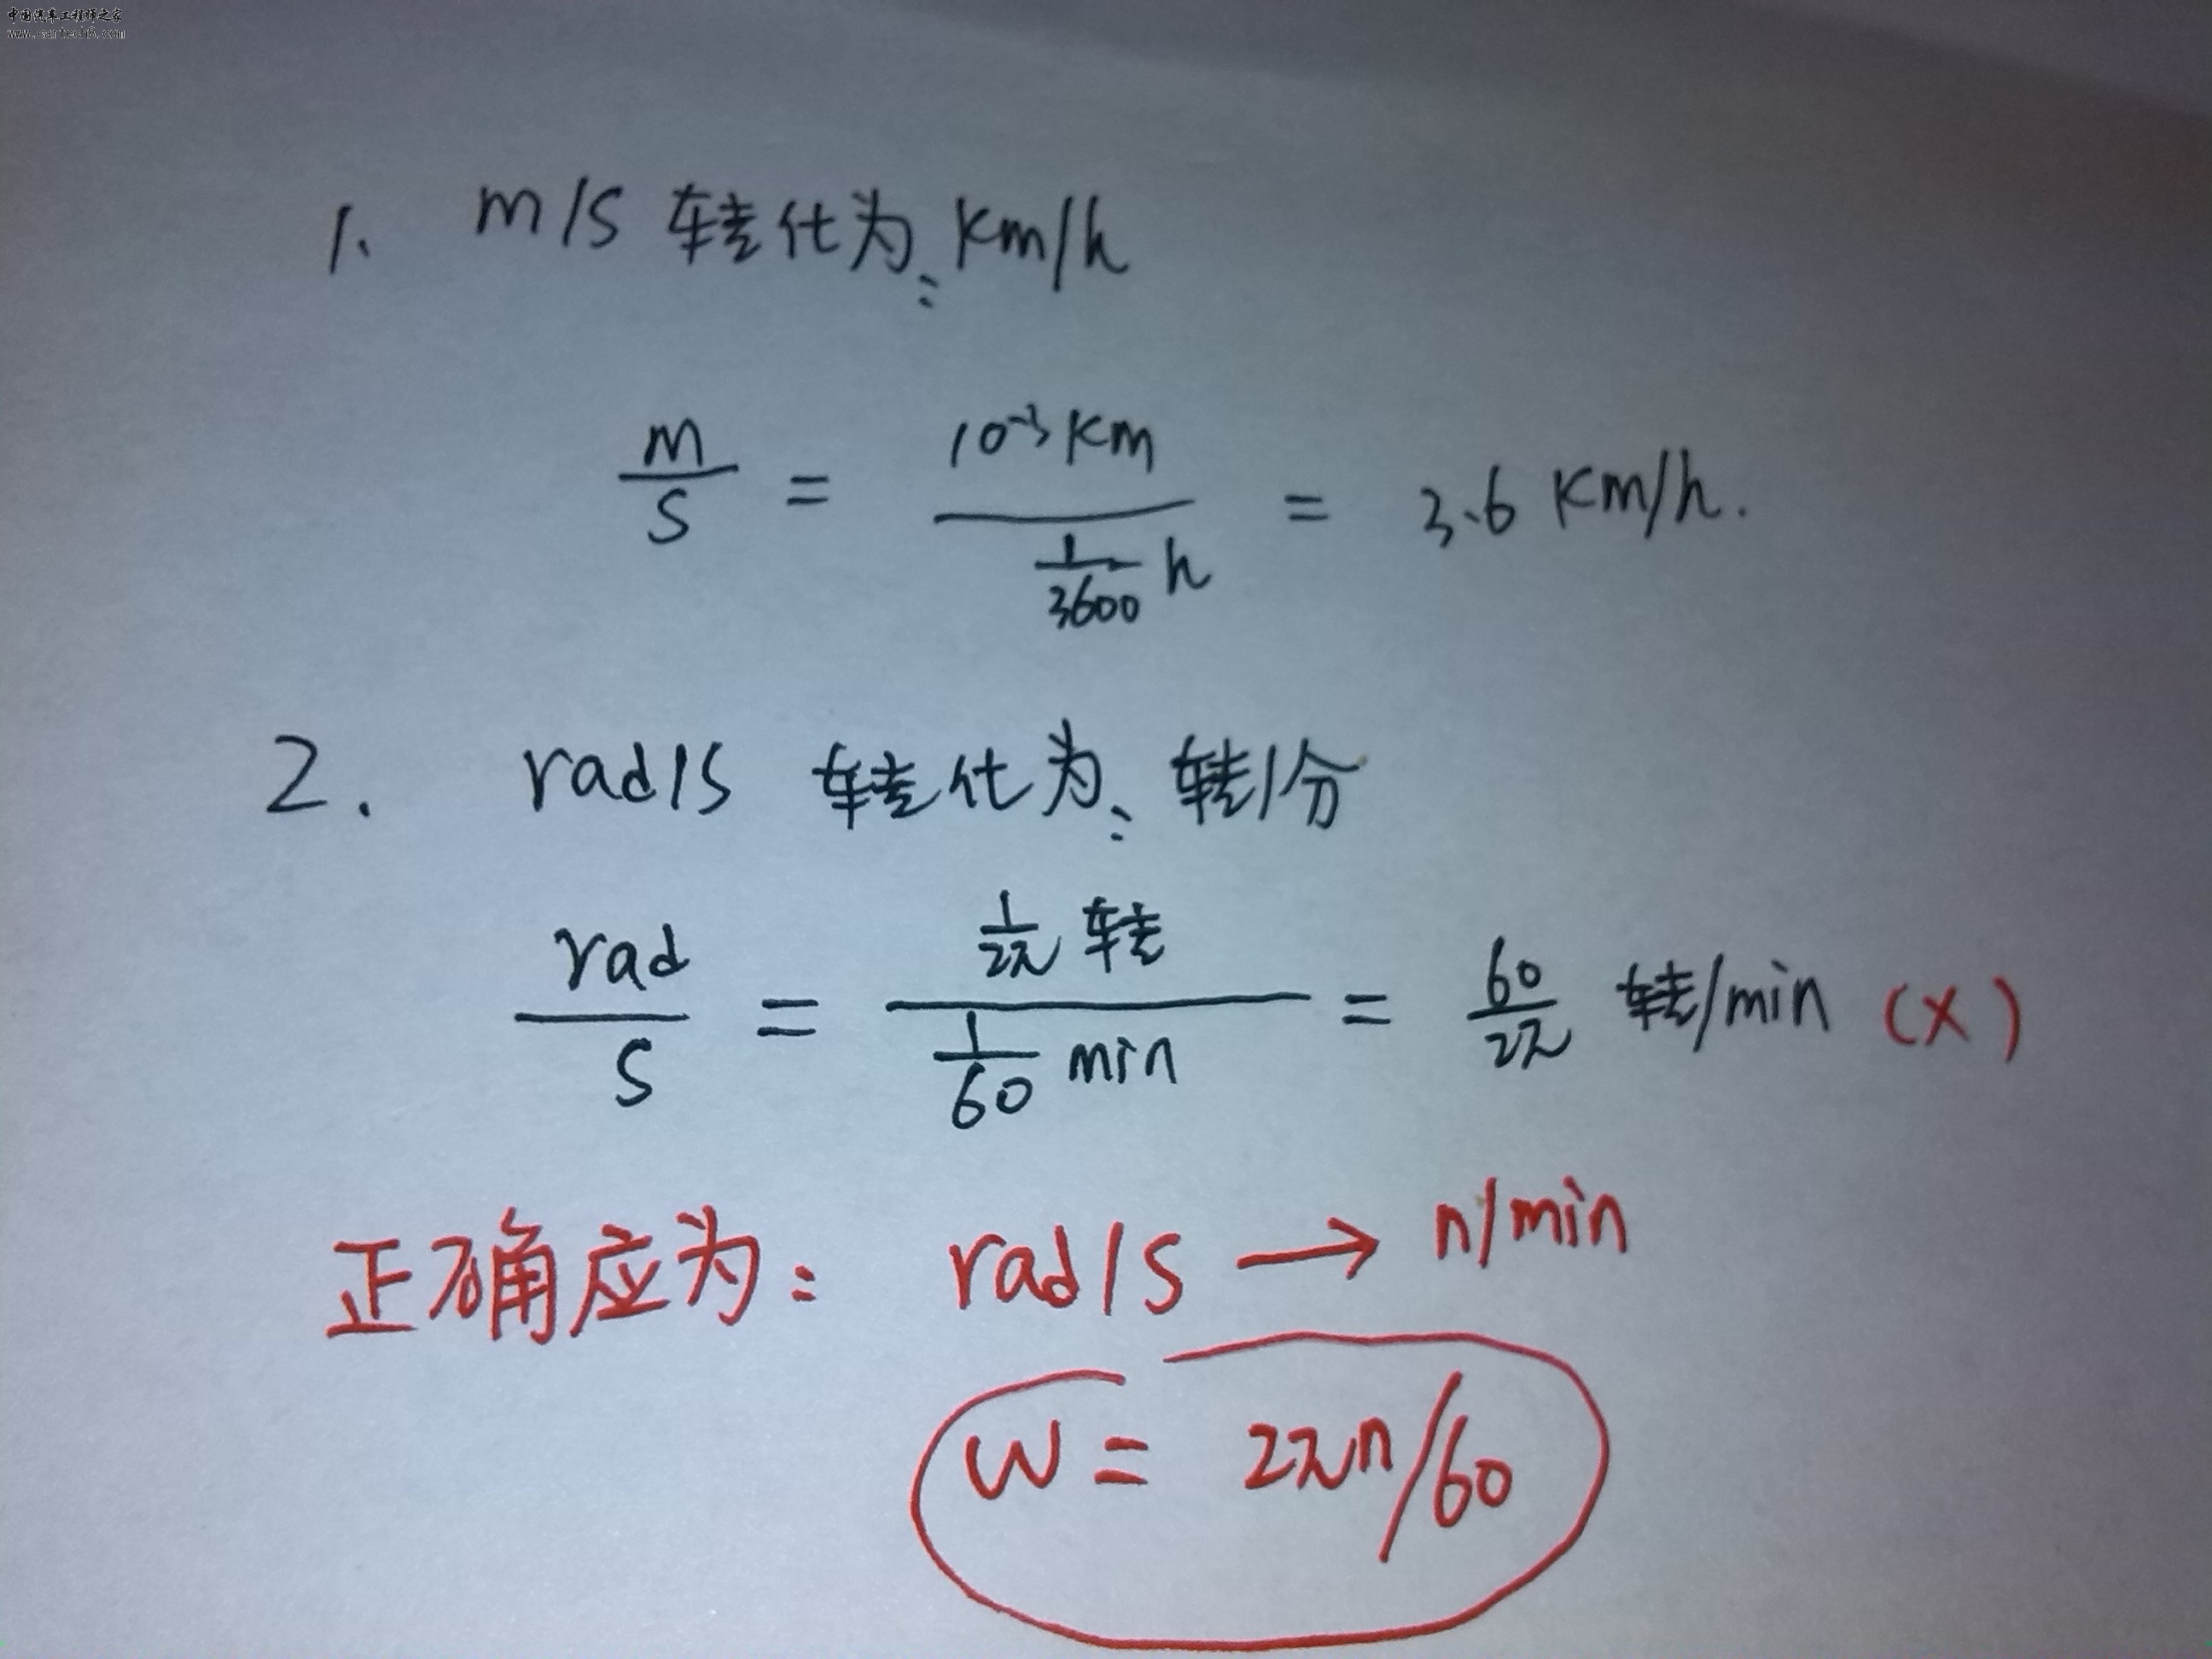 中国汽车工程师之家
www.cartech8.com
1、 m/s 转化为: km/h
m/s = 10⁻³km / (1/3600 h) = 3.6 km/h.
2. rad/s 转化为: 转/分
rad/s = (1/2π 转) / (1/60 min) = 60/2π 转/min (×)
正确应为: rad/s → n/min
w = 2πn/60